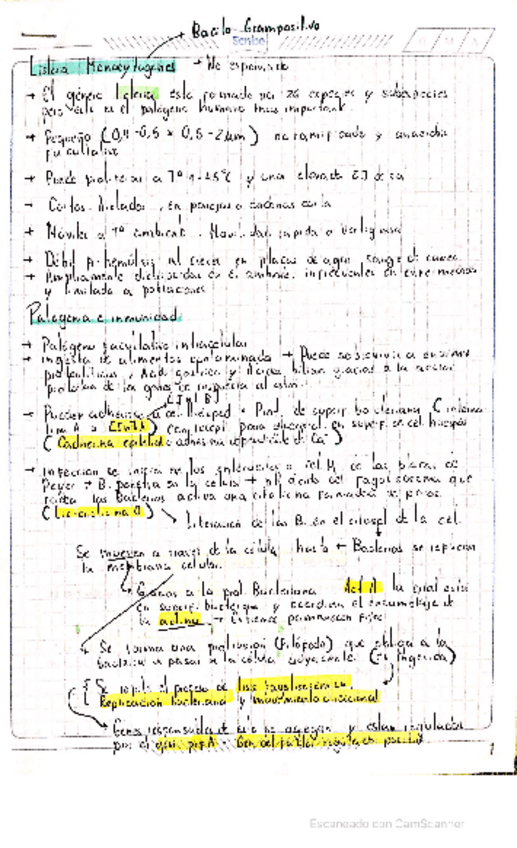 Bacilo Grampositivo
Scribe
Listeria Monocytogenes → No esporulado
→ El género Listeria esta formado por 26 especies y subespecies
pero esta es el patógeno humano mas importante.
→ Pequeño (0,4-0,5 x 0,5-2 µm) no ramificado y anaerobio
facultativo
→ Puede proliferar a 1°-45°C y una elevada [ ] de sal
→ Cortos. Aislados, en parejas o cadenas cortas
→ Móviles a T° ambiente.
→ Débil β-hemólisis al crecer en placas de agar sangre de carnero
→ Ampliamente distribuidas en el ambiente, infrecuente en enfermedades
y limitada a poblaciones
Patogenia e inmunidad
→ Patógeno facultativo intracelular
→ Ingesta de alimentos contaminados → Puede sobrevivir a enzimas
proteolíticas, Acido gástrico y sales biliares gracias a la acción
protectora de los genes de respuesta al estrés.
[InlB]
→ Pueden adherirse a cel. Huésped → Prot. de superf. bacteriana (interna
lina A o [InlA])
(Cadherina epitelial → adhesina dependiente de Ca²⁺)
→ Infección se inicia en los enterocitos o cel. M de las placas de
Peyer → B. penetra en la célula → pH ácido del fagolisosoma que
rodea las bacterias activa una citolisina formadora de poros.
(Listeriolisina O)
Liberación de las B. en el citosol de la cel.
Se mueven a traves de la célula hasta ← Bacterias se replican
la membrana celular.
Gracias a la prot. Bacteriana ActA la cual está
en superf. bacteriana y coordina el ensamblaje de
la actina. → Extremos permanecen fijos
Se forma una protrusión (Filópodo) que obliga a la
bacteria a pasar a la célula adyacente. (es ingerida)
Se repite el proceso de lisis fagolisosómica,
Replicación bacteriana y movimiento direccional
Genes responsables de esto se agregan y estan regulados
por el gen prfA
1
Escaneado con CamScanner